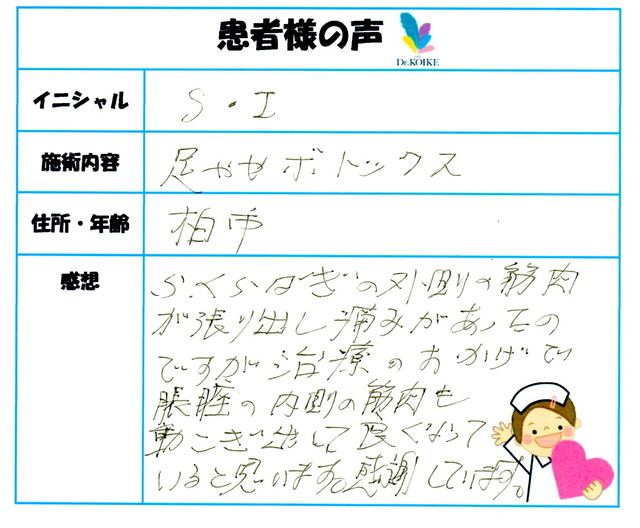 患者様の声
Dr.KOIKE
イニシャル S・I
施術内容 足やせボトックス
住所・年齢 柏市
感想 ふくらはぎの外側の筋肉
が張り出し痛みがあったの
ですが治療のおかげで
脹腫の内側の筋肉も
動こぎ出して良くなって
いると思います。感謝しています。